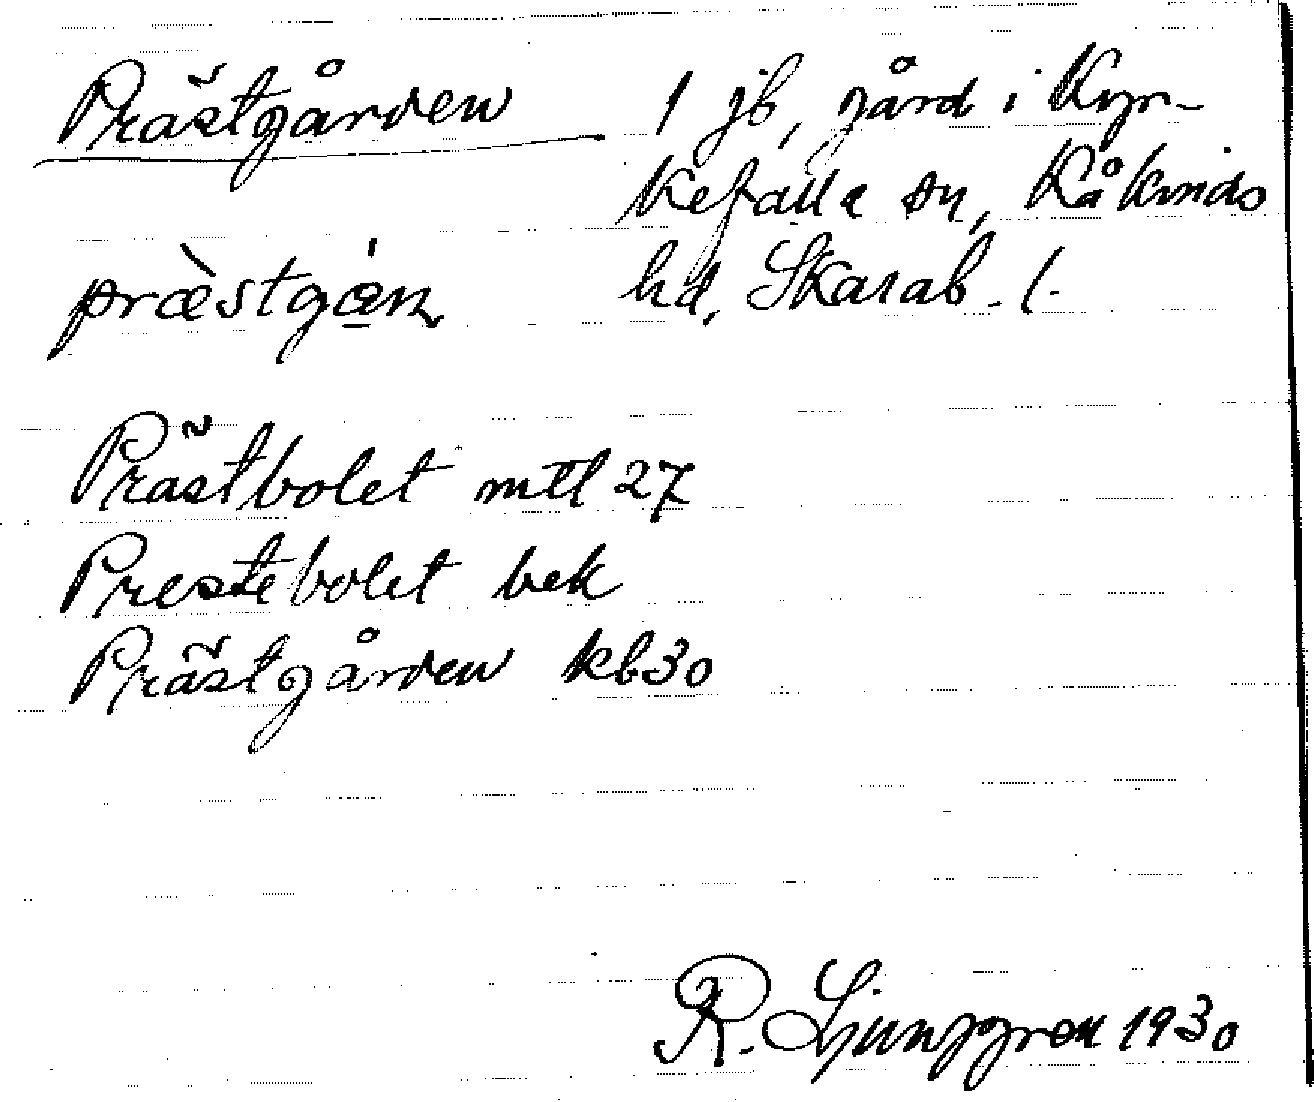 Prästgården 1 jb, gård i Kyr-
kefalla sn, Kåkinds
hd, Skarab. l.
præ̀stgán
Prästbolet mtl 27
Prestebolet bek
Prästgården kb30
R. Ljunggren 1930